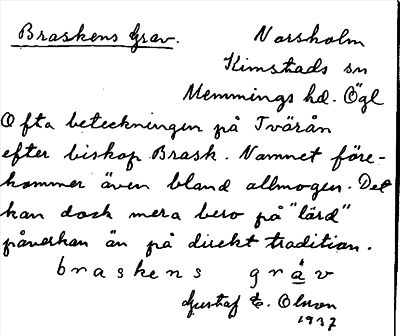 Braskens Grav.
Norsholm
Kimstads sn
Memmings hd. Ögl
Ofta beteckningen på Tvärån
efter biskop Brask. Namnet före-
kommer även bland allmogen. Det
kan dock mera bero på "lärd"
påverkan än på direkt tradition.
braskens gråv
Gustaf E. Olsson
1937